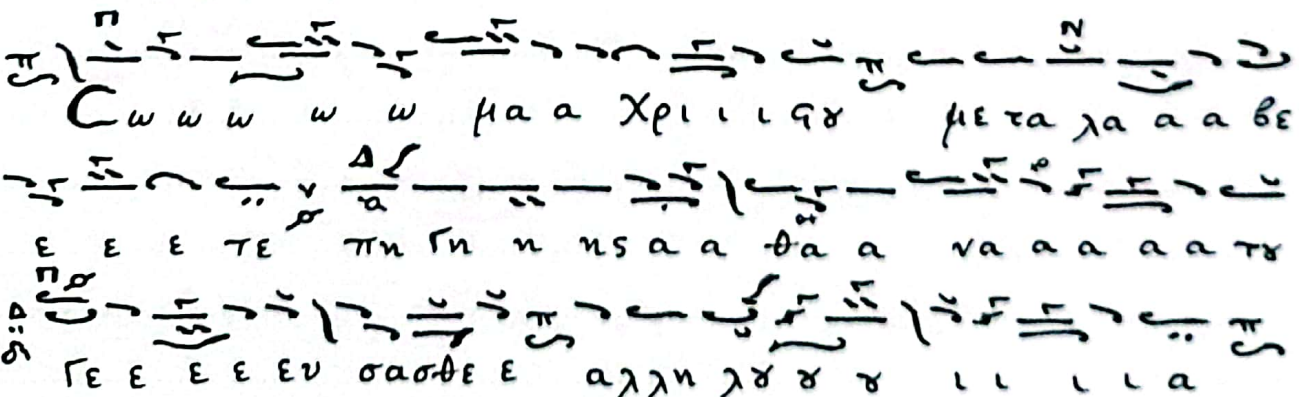 Σω ω ω ω ω μα α Χρι ι ι ϛȣ με τα λα α α βε
ε ε ε τε πη γη η ης α α θα α να α α α α τȣ
γε ε ε ε ευ σασθε ε αλλη λȣ ȣ ȣ ι ι ι ι α